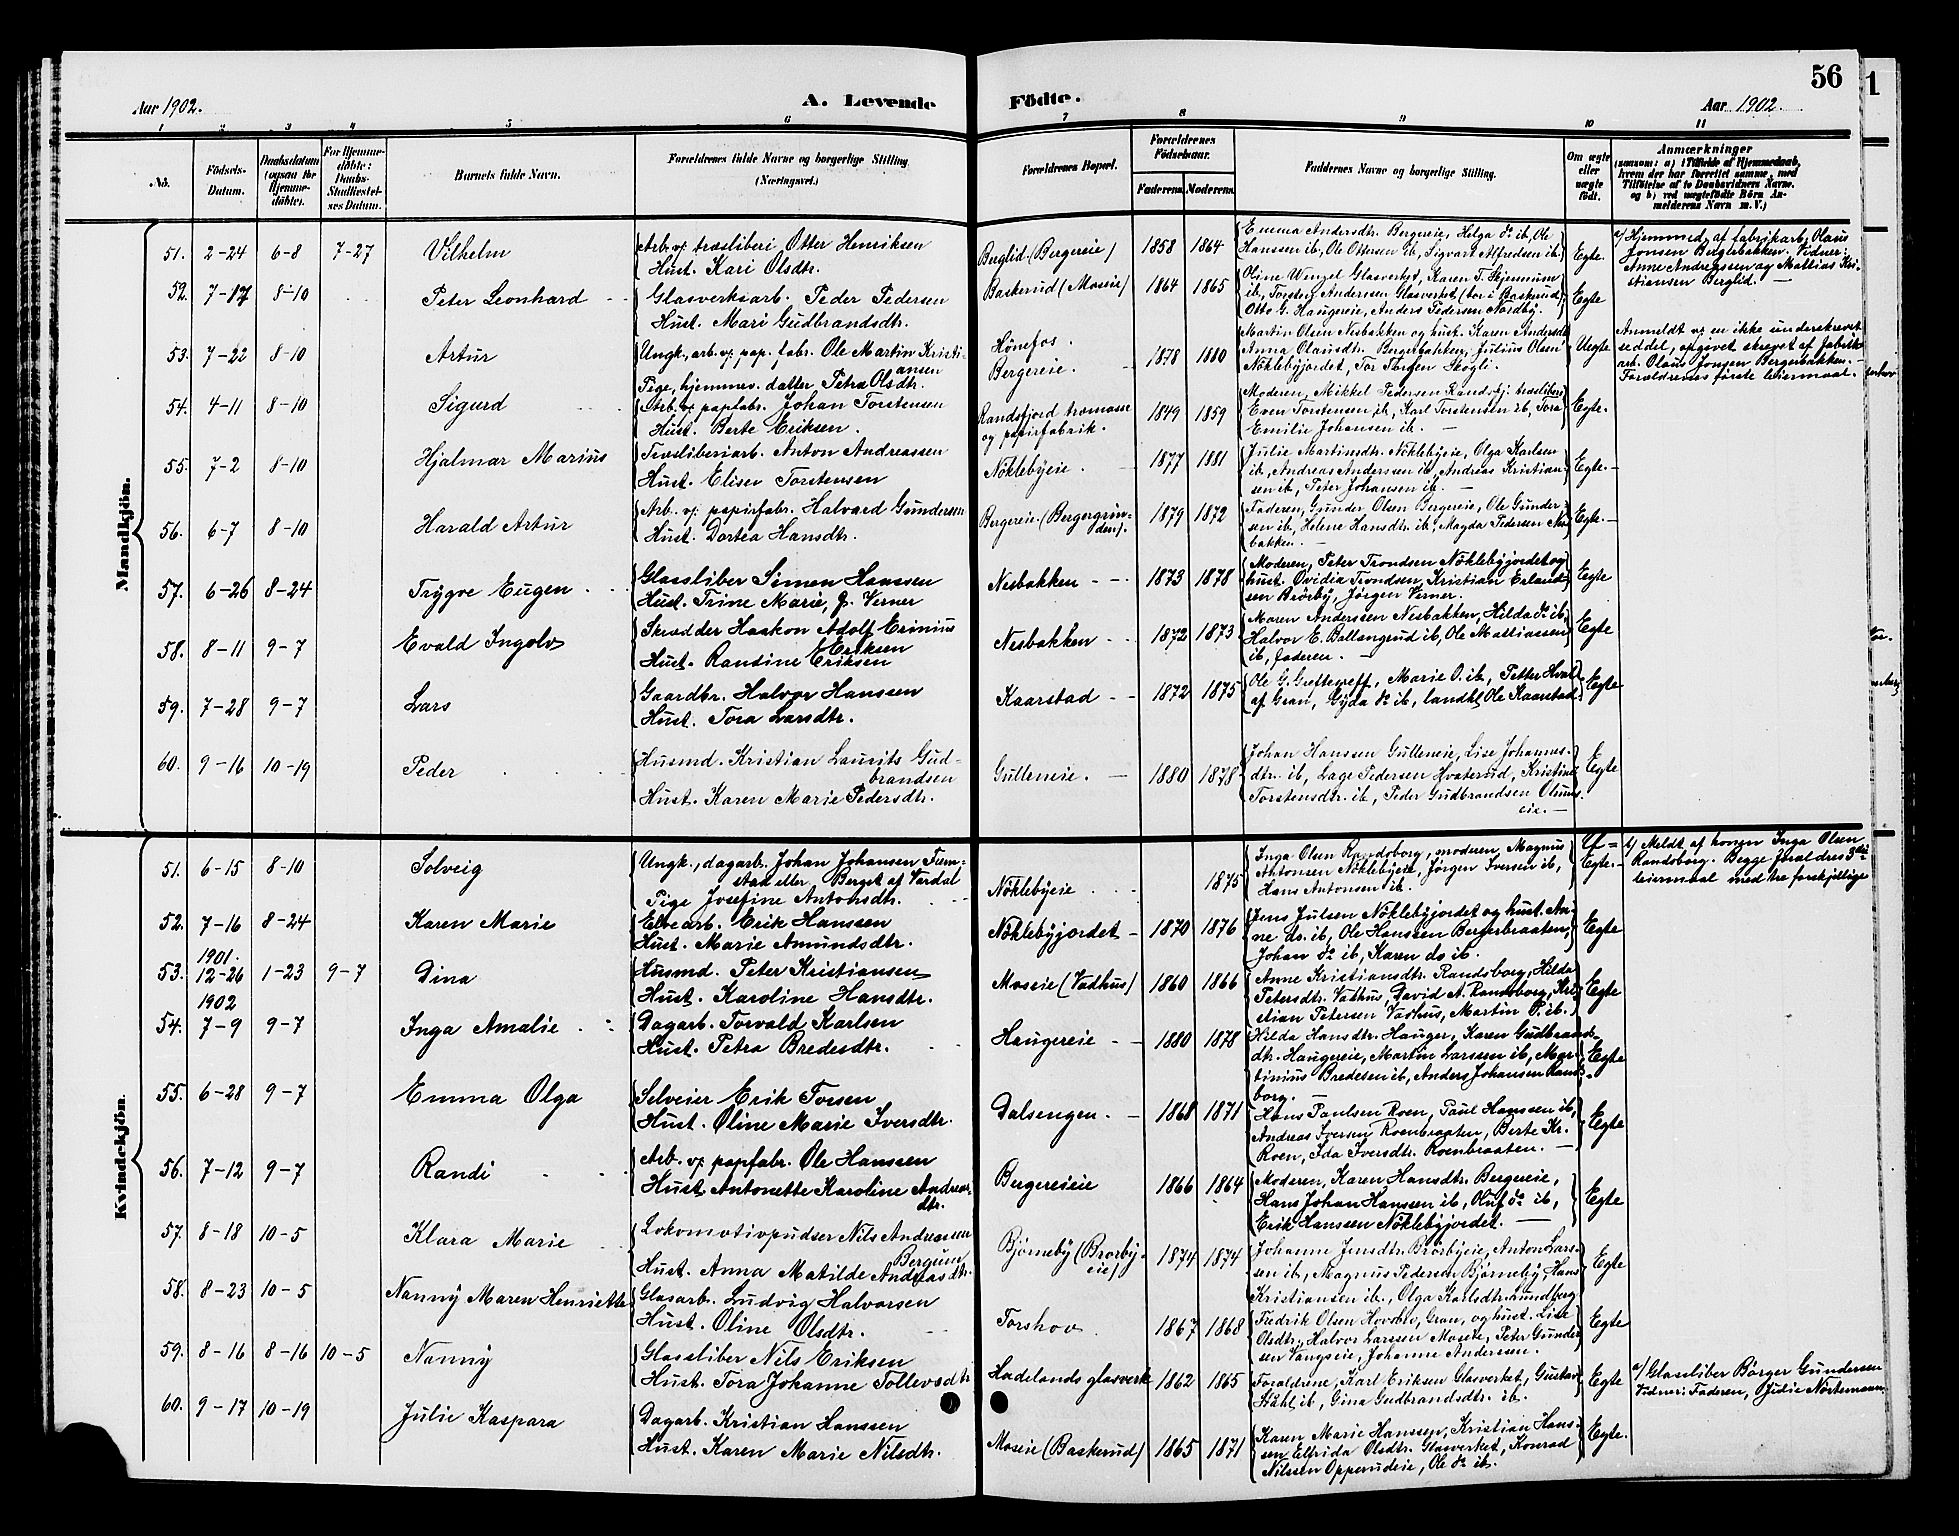 56
Aar 1902.
A. Levende
Fødte.
Aar 1902.
1 2 3 4 5 6 7 8 9 10 11
No.
Fødsels-
Datum.
Daabsdatum
(ogsaa for
Hjemme-
døbte).
For Hjemme-
døbte:
Daabs-
Stadfæstel-
ses Datum.
Barnets fulde Navn.
Forældrenes fulde Navne og borgerlige Stilling
(Næringsvei.)
Forældrenes Bopæl.
Forældrenes
Fødselsaar.
Faderens. Moderens.
Faddernes Navne og borgerlige Stilling.
Om ægte
eller
uægte
født.
Anmærkninger
(saasom: a) i Tilfælde af Hjemmedaab,
hvem der har forrettet samme, med
Tilføielse af to Daabsvidners Navne.
og b) ved uægtefødte Børn An-
melderens Navn m. V.)
Mandkjøn.
51. 2-24 6-8 7-27 Vilhelm
Arb. v. træsliberi Otter Henriksen
Hust. Kari Olsdtr.
Berglid (Bergereie) 1858 1864
Emma Andersdtr. Bergereie, Helga do ib, Ole
Hanssen ib, Ole Ottersen ib, Sigvart Alfredsen ib.
Egte.
a/ Hjemmed. af fabrikarb. Olaus
Jonsen Bergerbakken. Vidner:
Anne Andreassen og Mattias Kri-
stiansen Berglid. —
52. 7-17 8-10 Peter Leonhard
Glasverksarb. Peder Pedersen
Hust. Mari Gudbrandsdtr.
Baskerud (Moseie) 1864 1865
Oline Wenzel Glasverket, Karen T. Skjennum
ib, Torsten Andersen Glasverket (bor i Baskerud)
Otto G. Haugereie, Anders Pedersen Nordby.
Egte
53. 7-22 8-10 Artur
Ungk., arb. v. pap. fabr. Ole Martin Kristi-
ansen
Pige, hjemmev. datter Petra Olsdtr.
Hønefos.
Bergereie. 1878 1880
Martin Olsen Nesbakken og hust. Karen Andersdtr
Anna Olausdtr. Bergerbakken, Julius Olsen
Nøklebyjordet, Tor Skøgli.
Uegte
Anmeldt v. en ikke underskrevet
seddel, opgivet skrevet af fabrik-
arb. Olaus Jonsen Bergerbakken. —
Forældrenes første leiermaal.
54. 4-11 8-10 Sigurd
Arb. v. papfabr. Johan Torstensen
Hust. Berte Eriksen.
Randsfjord træmasse
og papirfabrik. 1849 1859
Moderen, Mikkel Pedersen Randsfj. træsliberi
Even Torstensen ib, Karl Torstensen ib, Tora
Emilie Johansen ib. —
Egte.
55. 7-2 8-10 Hjalmar Marius
Træsliberiarb. Anton Andreassen
Hust. Elise Torstensen
Nøklebyeie. 1877 1881
Julie Martinsdtr. Nøklebyeie, Olga Karlsen
ib, Andreas Andersen ib, Andreas Kristian-
sen ib, Peter Johansen ib. —
Egte. —
56. 6-7 8-10 Harald Artur
Arb. v. papirfabr. Halvard Gundersen
Hust. Dortea Hansdtr.
Bergereie. (Bergergrin-
den). 1879 1872
Faderen, Gunder Olsen Bergereie, Ole Gunder-
sen ib, Helene Hansdtr. ib, Magda Pedersen Nes-
bakken. —
Egte. —
57. 6-26 8-24 Trygve Eugen
Glassliber Simen Hanssen
Hust. Trine Marie, f. Verner
Nesbakken 1873 1878
Moderen, Peter Trondsen Nøklebyjordet og
hust. Ovidia Trondsen, Kristian Erland-
sen Brørby, Jørgen Verner.
Egte
58. 8-11 9-7 Evald Ingolv
Skrædder Haakon Adolf Erinius
Eriksen
Hust. Randine Eriksen
Nesbakken 1872 1873
Maren Anderssen Nesbakken, Hilda do ib,
Halvor E. Ballangrud ib, Ole Mattiassen
ib, faderen. —
Egte
59. 7-28 9-7 Lars
Gaardbr. Halvor Hanssen
Hust. Tora Larsdtr.
Kaarstad 1872 1875
Ole G. Greftegreff, Marie O. ib, Petter Hval
af Gran, Gyda do ib, landh. Ole Kaarstad
Egte
60. 9-16 10-19 Peder
Husmd. Kristian Laurits Gud-
brandsen
Hust. Karen Marie Pedersdtr.
Gulleneie. 1880 1878
Johan Hanssen Gulleneie, Lise Johannes-
dtr. ib, Lage Pedersen Hvaterud, Kristine
Torstensdtr. ib, Peder Gudbrandsen
eie. —
Egte
Kvindekjøn.
51. 6-15 8-10 Solveig
Ungk., dagarb. Johan Johansen Fum-
stad eller Berget af Vardal
Pige Josefine Antonsdtr.
Nøklebyeie 1875
Inga Olsen Randsborg, moderen, Magnus
Antonsen Nøklebyeie, Jørgen Iversen ib,
Hans Antonsen ib.
U =
Egte. —
b/ Meldt af konen Inga Olsen
Randsborg. Begge forældres 3die
leiermaal med tre forskjellige
52. 7-16 8-24 Karen Marie
Elvearb. Erik Hanssen
Hust. Marie Amundsdtr.
Nøklebyjordet 1870 1876
Jens Julsen Nøklebyjordet og hust. An-
ne do. ib, Ole Hanssen Bergerbraaten,
Johan do ib, Karen do ib.
Egte
1901.
53. 12-26 1-23 9-7 Dina
Husmd. Peter Kristiansen
Hust. Karoline Hansdtr.
Moseie (Vadhus) 1860 1866
Anne Kristiansdtr. Randsborg, Hilda
Petersdtr. Vadhus, David A. Randsborg, Kri-
stian Petersen Vadhus, Martin P. ib.
Egte
1902
54. 7-9 9-7 Inga Amalie
Dagarb. Torvald Karlsen
Hust. Petra Bredesdtr.
Haugereie 1880 1878
Hilda Hansdtr. Hauger, Karen Gudbrands-
dtr. Haugereie, Martin Larssen ib, Mar-
tinius Bredesen ib, Anders Johansen Rands-
borg. —
Egte
55. 6-28 9-7 Emma Olga
Selveier Erik Torsen
Hust. Oline Marie Iversdtr.
Dalsengen. 1868 1871
Hans Paulsen Roen, Paul Hanssen ib,
Andreas Iversen Roenbraaten, Berte Kr.
Roen, Ida Iversdtr. Roenbraaten. —
Egte
56. 7-12 9-7 Randi
Arb. v. papfabr. Ole Hanssen
Hust. Antonette Karoline Andreas-
dtr.
Bergereieie 1866 1864
Moderen, Karen Hansdtr. Bergereie,
Hans Johan Hanssen ib, Oluf do ib,
Erik Hanssen Nøklebyjordet. —
Egte
57. 8-18 10-5 Klara Marie
Lokomotivpudser Nils Andreasen
Bergum
Hust. Anna Matilde Andreasdtr.
Bjørneby (Brørby-
eie) 1874 1874
Johanne Jensdtr. Brørbyeie, Anton Lars-
sen ib, Magnus Pedersen Bjørneby, Hans
Kristiansen ib, Olga Karlsdtr. Sundberg
Egte
58. 8-23 10-5 Nanny Maren Henriette
Glasarb. Ludvig Halvorsen
Hust. Oline Olsdtr.
Torshov 1867 1868
Fredrik Olsen Hovslo, Gran, og hust. Lise
Olsdtr., Halvor Larssen Moseie, Peter Gunder-
sen Vangseie, Johanne Andersen.
Egte
59. 8-16 8-16 10-5 Nanny
Glassliber Nils Eriksen
Hust. Tora Johanne Tollevsdtr
Hadelands glasverk 1862 1865
Forældrene, Karl Eriksen Glasverket, Gustav
Ståhl ib, Gina Gudbrandsdtr. ib.
Egte
a/ Glassliber Børger Gundersen
Vidner: Faderen, Jidia Nortemann
60. 9-17 10-19 Julie Kaspara
Dagarb. Kristian Hanssen
Hust. Karen Marie Nilsdtr.
Moseie (Baskerud) 1865 1871
Karen Marie Hanssen, Kristian Hans-
sen Elfrida Olsdtr. Glasverket, Konrad
Nilssen Opperudeie, Ole do ib.
Egte.